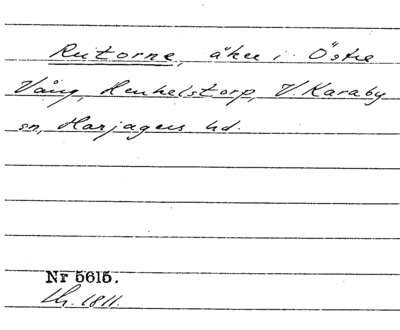 Rutorne, åker i Östre
Vång, Henkelstorp, V. Karaby
sn, Harjagers hd.
Nr 5615.
Lh. 1811.